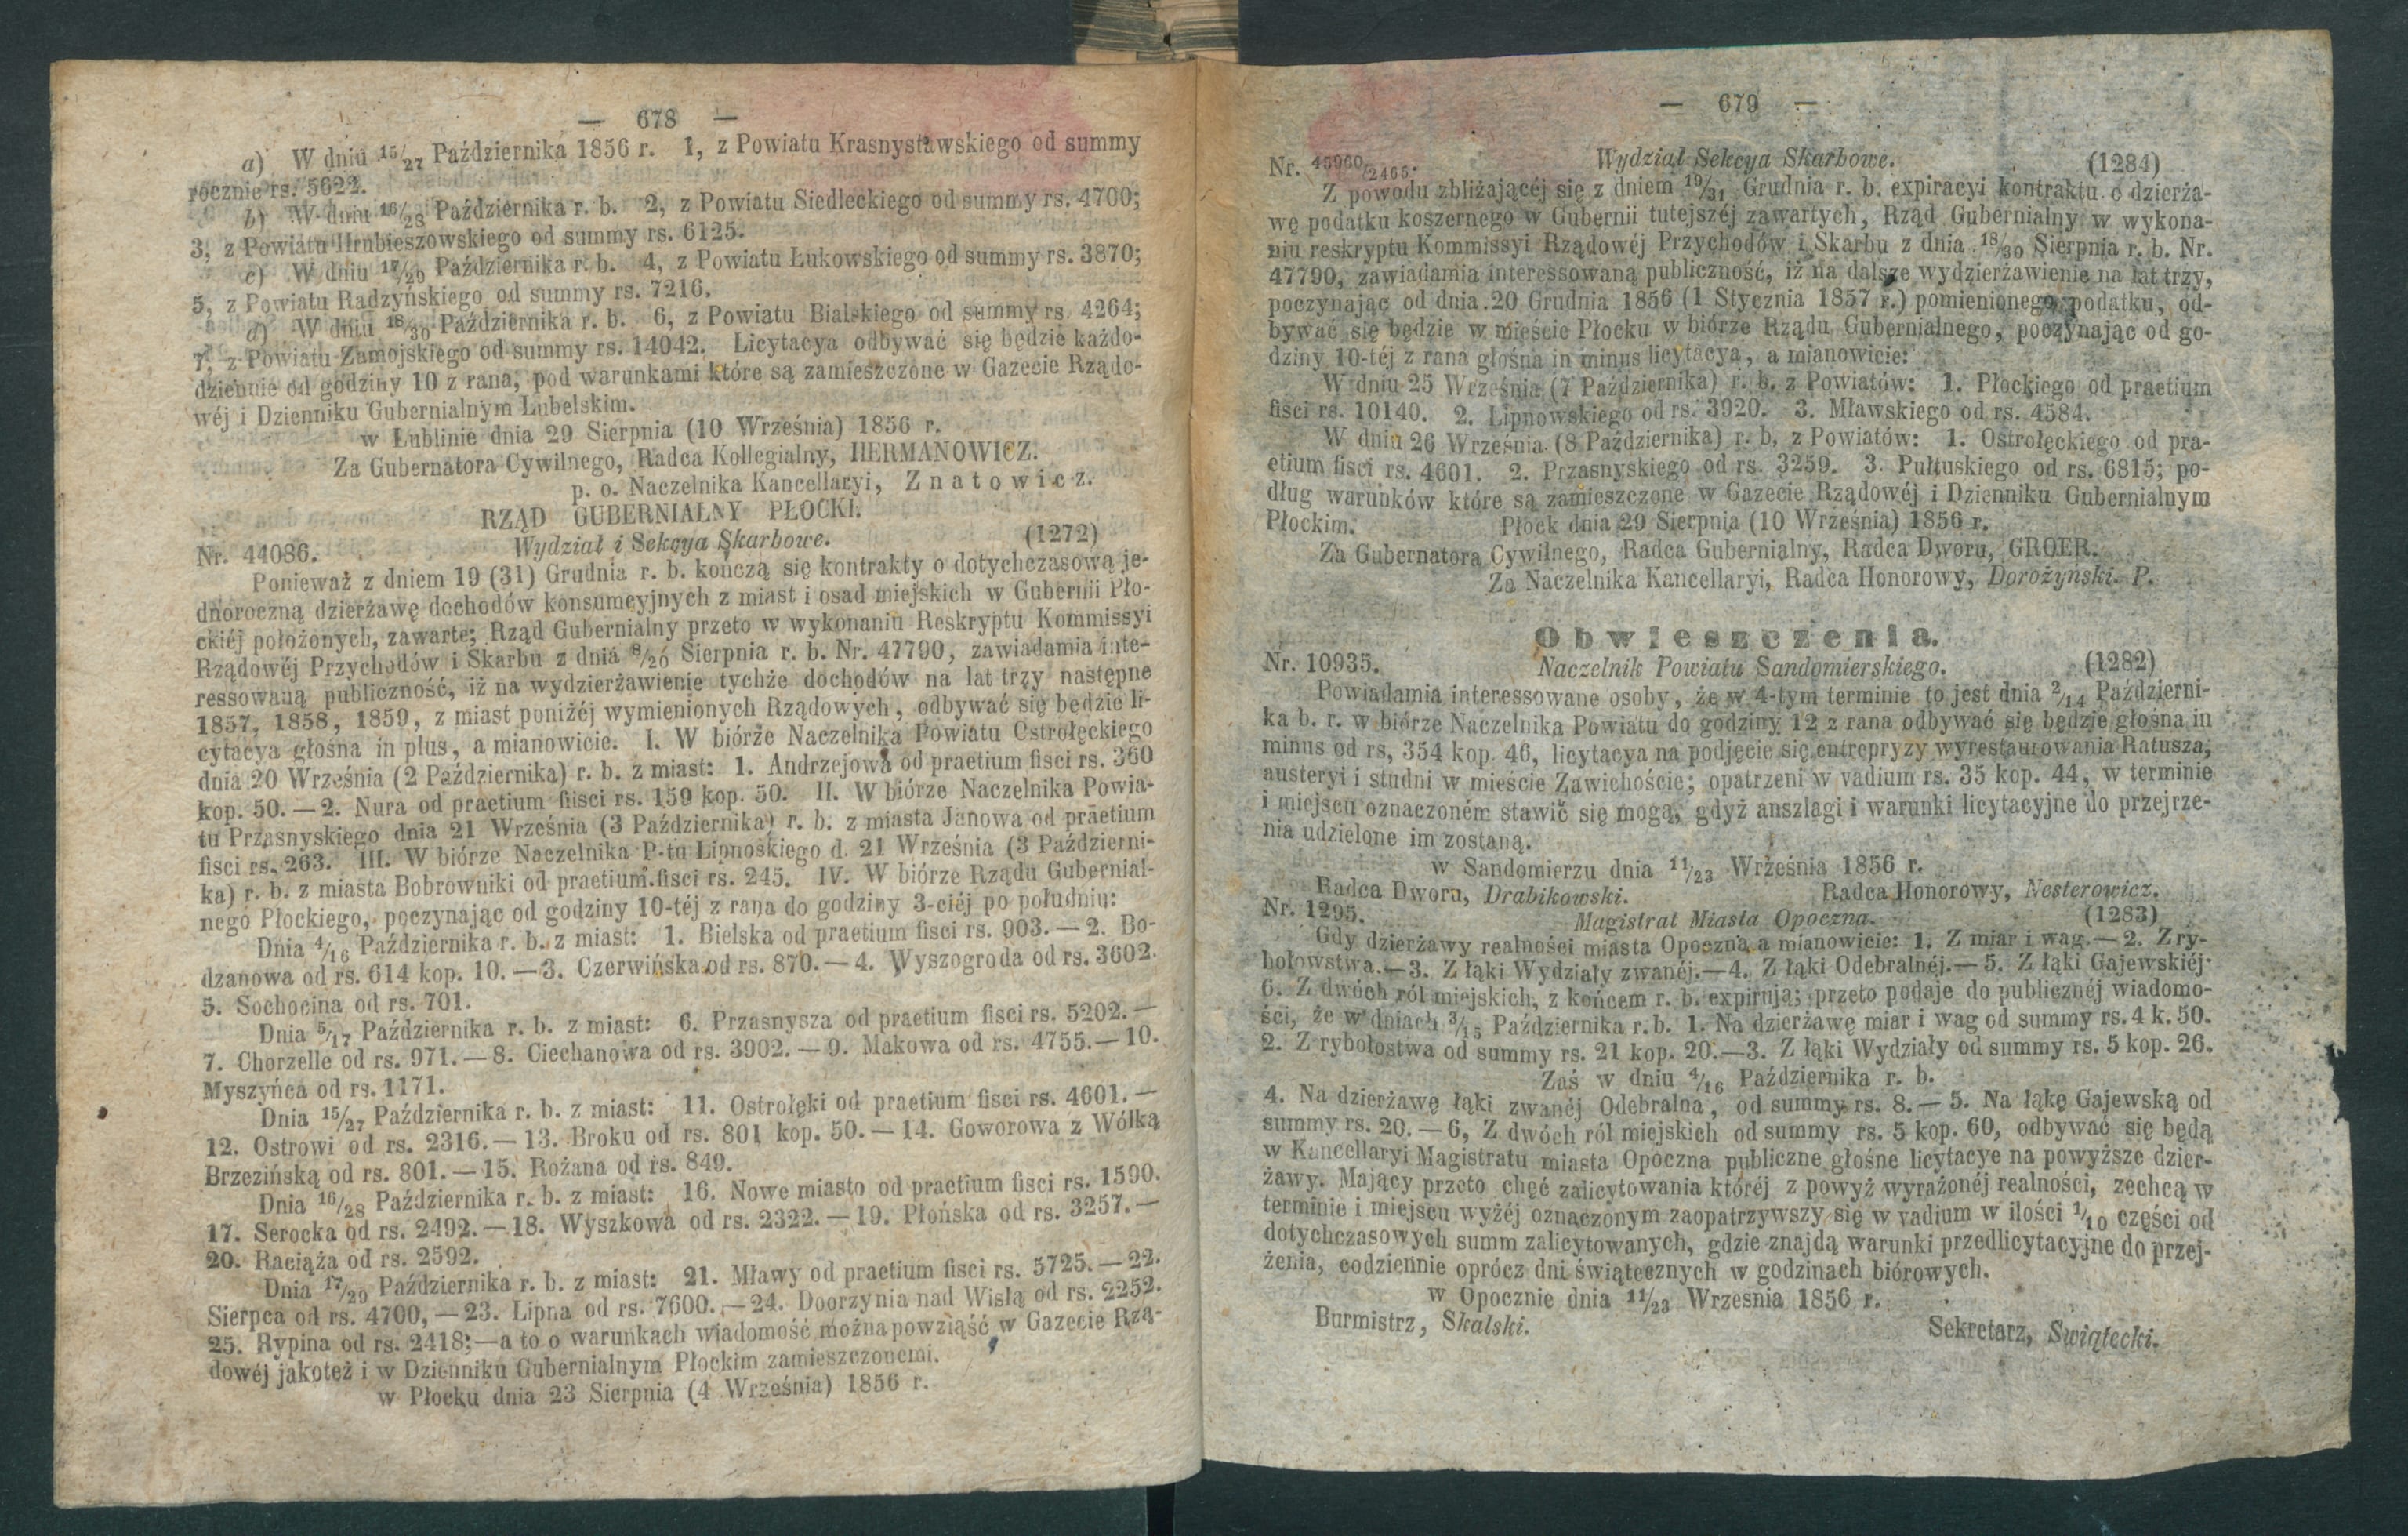 — 678 —
a) W dniu 15/27 Października 1856 r. 1, z Powiatu Krasnystawskiego od summy
rocznie rs. 5622.
b) W dniu 16/28 Października r. b. 2, z Powiatu Siedleckiego od summy rs. 4700;
3, z Powiatu Hrubieszowskiego od summy rs. 6125.
c) W dniu 17/29 Października r. b. 4, z Powiatu Łukowskiego od summy rs. 3870;
5, z Powiatu Radzyńskiego od summy rs. 7216.
d) W dniu 18/30 Października r. b. 6, z Powiatu Bialskiego od summy rs. 4264;
7, z Powiatu Zamojskiego od summy rs. 14042. Licytacya odbywać się będzie każdo-
dziennie od godziny 10 z rana, pod warunkami które są zamieszczone w Gazecie Rządo-
wéj i Dzienniku Gubernialnym Lubelskim.
w Lublinie dnia 29 Sierpnia (10 Września) 1856 r.
Za Gubernatora Cywilnego, Radca Kollegialny, HERMANOWICZ.
p. o. Naczelnika Kancellaryi, Znatowicz.
RZĄD GUBERNIALNY PŁOCKI.
Nr. 44086. Wydział i Sekcya Skarbowe. (1272)
Ponieważ z dniem 19 (31) Grudnia r. b. kończą się kontrakty o dotychczasową je-
dnoroczną dzierżawę dochodów konsumcyjnych z miast i osad miejskich w Gubernii Pło-
ckiéj położonych, zawarte; Rząd Gubernialny przeto w wykonaniu Reskryptu Kommissyi
Rządowéj Przychodów i Skarbu z dnia 8/20 Sierpnia r. b. Nr. 47790, zawiadamia inte-
ressowaną publiczność, iż na wydzierżawienie tychże dochodów na lat trzy następne
1857, 1858, 1859, z miast poniżéj wymienionych Rządowych, odbywać się będzie li-
cytacya głośna in plus, a mianowicie. I. W biórze Naczelnika Powiatu Ostrołęckiego
dnia 20 Września (2 Października) r. b. z miast: 1. Andrzejowa od praetium fisci rs. 360
kop. 50. — 2. Nura od praetium fiisci rs. 159 kop. 50. II. W biórze Naczelnika Powia-
tu Przasnyskiego dnia 21 Września (3 Października) r. b. z miasta Janowa od praetium
fisci rs. 263. III. W biórze Naczelnika P-tu Lipnoskiego d. 21 Września (3 Październi-
ka) r. b. z miasta Bobrowniki od praetium fisci rs. 245. IV. W biórze Rządu Gubernial-
nego Płockiego, poczynając od godziny 10-téj z rana do godziny 3-ciéj po południu:
Dnia 4/16 Października r. b. z miast: 1. Bielska od praetium fisci rs. 903. — 2. Bo-
dzanowa od rs. 614 kop. 10. — 3. Czerwińska od rs. 870. — 4. Wyszogroda od rs. 3602.
5. Sochocina od rs. 701.
Dnia 5/17 Października r. b. z miast: 6. Przasnysza od praetium fisci rs. 5202. —
7. Chorzelle od rs. 971. — 8. Ciechanowa od rs. 3902. — 9. Makowa od rs. 4755. — 10.
Myszyńca od rs. 1171.
Dnia 15/27 Października r. b. z miast: 11. Ostrołęki od praetium fisci rs. 4601. —
12. Ostrowi od rs. 2316. — 13. Broku od rs. 801 kop. 50. — 14. Goworowa z Wólką
Brzezińską od rs. 801. — 15. Rożana od rs. 849.
Dnia 16/28 Października r. b. z miast: 16. Nowe miasto od praetium fisci rs. 1590.
17. Serocka od rs. 2492. — 18. Wyszkowa od rs. 2322. — 19. Płońska od rs. 3257. —
20. Raciąża od rs. 2592.
Dnia 17/29 Października r. b. z miast: 21. Mławy od praetium fisci rs. 5725. — 22.
Sierpca od rs. 4700, — 23. Lipna od rs. 7600. — 24. Doorzynia nad Wisłą od rs. 2252.
25. Rypina od rs. 2418; — a to o warunkach wiadomość można powziąść w Gazecie Rzą-
dowéj jakoteż i w Dzienniku Gubernialnym Płockim zamieszczonemi.
w Płocku dnia 23 Sierpnia (4 Września) 1856 r.
— 679 —
Nr. 45960/2465. Wydział Sekcya Skarbowe. (1284)
Z powodu zbliżającéj się z dniem 19/31 Grudnia r. b. expiracyi kontraktu o dzierża-
wę podatku koszernego w Gubernii tutejszéj zawartych, Rząd Gubernialny w wykona-
niu reskryptu Kommissyi Rządowéj Przychodów i Skarbu z dnia 18/30 Sierpnia r. b. Nr.
47790, zawiadamia interessowaną publiczność, iż na dalsze wydzierżawienie na lat trzy,
poczynając od dnia 20 Grudnia 1856 (1 Stycznia 1857 r.) pomienionego podatku, od-
bywać się będzie w mieście Płocku w biórze Rządu Gubernialnego, poczynając od go-
dziny 10-téj z rana głośna in minus licytacya, a mianowicie:
W dniu 25 Września (7 Października) r. b. z Powiatów: 1. Płockiego od praetium
fisci rs. 10140. 2. Lipnowskiego od rs. 3920. 3. Mławskiego od rs. 4584.
W dniu 26 Września (8 Października) r. b, z Powiatów: 1. Ostrołęckiego od pra-
etium fisci rs. 4601. 2. Przasnyskiego od rs. 3259. 3. Pułtuskiego od rs. 6815; po-
dług warunków które są zamieszczone w Gazecie Rządowéj i Dzienniku Gubernialnym
Płockim. Płock dnia 29 Sierpnia (10 Września) 1856 r.
Za Gubernatora Cywilnego, Radca Gubernialny, Radca Dworu, GROER.
Za Naczelnika Kancellaryi, Radca Honorowy, Dorożyński. P.
Obwieszczenia.
Nr. 10935. Naczelnik Powiatu Sandomierskiego. (1282)
Powiadamia interessowane osoby, że w 4-tym terminie to jest dnia 2/14 Październi-
ka b. r. w biórze Naczelnika Powiatu do godziny 12 z rana odbywać się będzie głośna in
minus od rs, 354 kop. 46, licytacya na podjęcie się entrepryzy wyrestaurowania Ratusza,
austeryi i studni w mieście Zawichoście; opatrzeni w vadium rs. 35 kop. 44, w terminie
i miejscu oznaczoném stawić się mogą, gdyż anszlagi i warunki licytacyjne do przejrze-
nia udzielone im zostaną.
w Sandomierzu dnia 11/23 Września 1856 r.
Radca Dworu, Drabikowski. Radca Honorowy, Nesterowicz.
Nr. 1295. Magistrat Miasta Opoczna. (1283)
Gdy dzierżawy realności miasta Opoczna a mianowicie: 1. Z miar i wag. — 2. Z ry-
hołowstwa. — 3. Z łąki Wydziały zwanéj. — 4. Z łąki Odebralnéj. — 5. Z łąki Gajewskiéj·
6. Z dwóch ról miejskich, z końcem r. b. expirują; przeto podaje do publicznéj wiadomo-
ści, że w dniach 3/15 Października r. b. 1. Na dzierżawę miar i wag od summy rs. 4 k. 50.
2. Z rybołostwa od summy rs. 21 kop. 20. — 3. Z łąki Wydziały od summy rs. 5 kop. 26.
Zaś w dniu 4/16 Października r. b.
4. Na dzierżawę łąki zwanéj Odebralna, od summy rs. 8. — 5. Na łąkę Gajewską od
summy rs. 20. — 6, Z dwóch ról miejskich od summy rs. 5 kop. 60, odbywać się będą
w Kancellaryi Magistratu miasta Opoczna publiczne głośne licytacye na powyższe dzier-
żawy. Mający przeto chęć zalicytowania któréj z powyż wyrażonéj realności, zechcą w
terminie i miejscu wyżéj oznaczonym zaopatrzywszy się w vadium w ilości 1/10 części od
dotychczasowych summ zalicytowanych, gdzie znajdą warunki przedlicytacyjne do przej-
żenia, codziennie oprócz dni świątecznych w godzinach biórowych.
w Opocznie dnia 11/23 Wrzesnia 1856 r.
Burmistrz, Skalski. Sekretarz, Swiątecki.